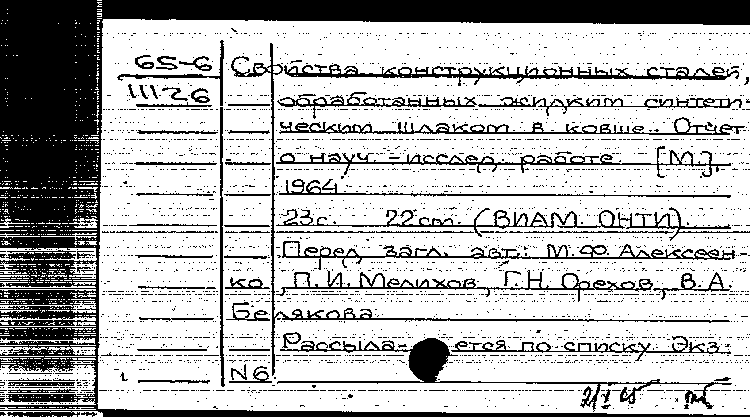 65-6 Свойства конструкционных сталей,
11126 обработанных жидким синтети-
ческим шлаком в ковше. Отчет
о науч.-исслед. работе. [М.],
1964
23с. 22см. (ВИАМ. ОНТИ).
Перед загл. авт.: М.Ф. Алексеен-
ко, П.И. Мелихов, Г.Н. Орехов, В.А.
Белякова
Рассыла-ется по списку. Экз.
N6